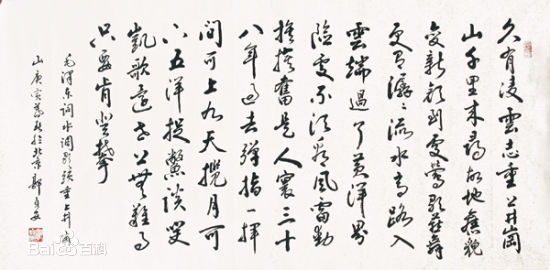 久有凌雲志重上井崗
山千里來尋故地舊貌
變新顔到處鶯歌燕舞
更有潺〻流水高路入
雲端過了黄洋界
險處不須看風雷動
旌旗奮是人寰三十
八年過去彈指一揮
間可上九天攬月可
下五洋捉鱉談笑
凱歌還世上無難事
只要肯登攀
毛澤東詞水調歌頭重上井岡
山庚寅秋於北京
Baidu百科